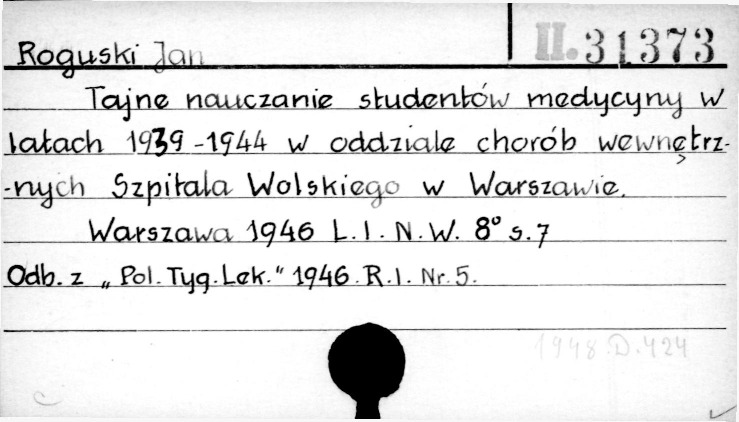 Roguski Jan II. 31373
Tajne nauczanie studentów medycyny w
latach 1939-1944 w oddziale chorób wewnętrz-
-nych Szpitala Wolskiego w Warszawie.
Warszawa 1946 L.I.N.W. 8° s.7
Odb. z „Pol. Tyg. Lek." 1946. R.I. Nr. 5.
1948.D.424
C